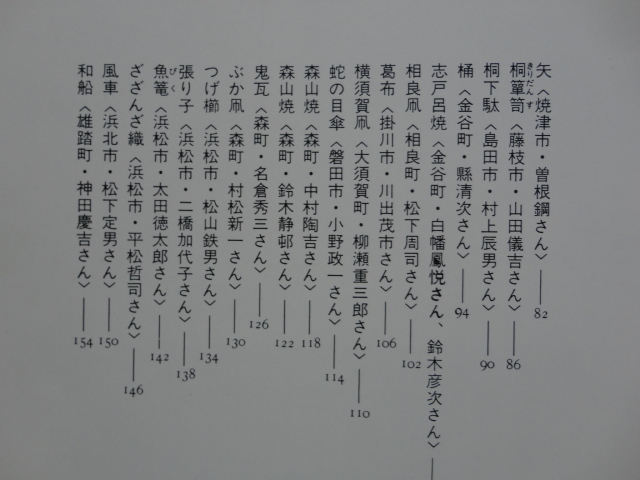 矢〈焼津市・曽根鋼さん〉――82
桐簞笥〈藤枝市・山田儀吉さん〉――86
きりだんす
桐下駄〈島田市・村上辰男さん〉――90
桶〈金谷町・縣清次さん〉――94
志戸呂焼〈金谷町・白幡鳳悦さん、鈴木彦次さん〉――
相良凧〈相良町・松下周司さん〉――102
葛布〈掛川市・川出茂市さん〉――106
横須賀凧〈大須賀町・柳瀬重三郎さん〉――110
蛇の目傘〈磐田市・小野政一さん〉――114
森山焼〈森町・中村陶吉さん〉――118
森山焼〈森町・鈴木静邨さん〉――122
鬼瓦〈森町・名倉秀三さん〉――126
ぶか凧〈森町・村松新一さん〉――130
つげ櫛〈浜松市・松山鉄男さん〉――134
張り子〈浜松市・二橋加代子さん〉――138
魚篭〈浜松市・太田徳太郎さん〉――142
びく
ざざんざ織〈浜松市・平松哲司さん〉――146
風車〈浜北市・松下定男さん〉――150
和船〈雄踏町・神田慶吉さん〉――154